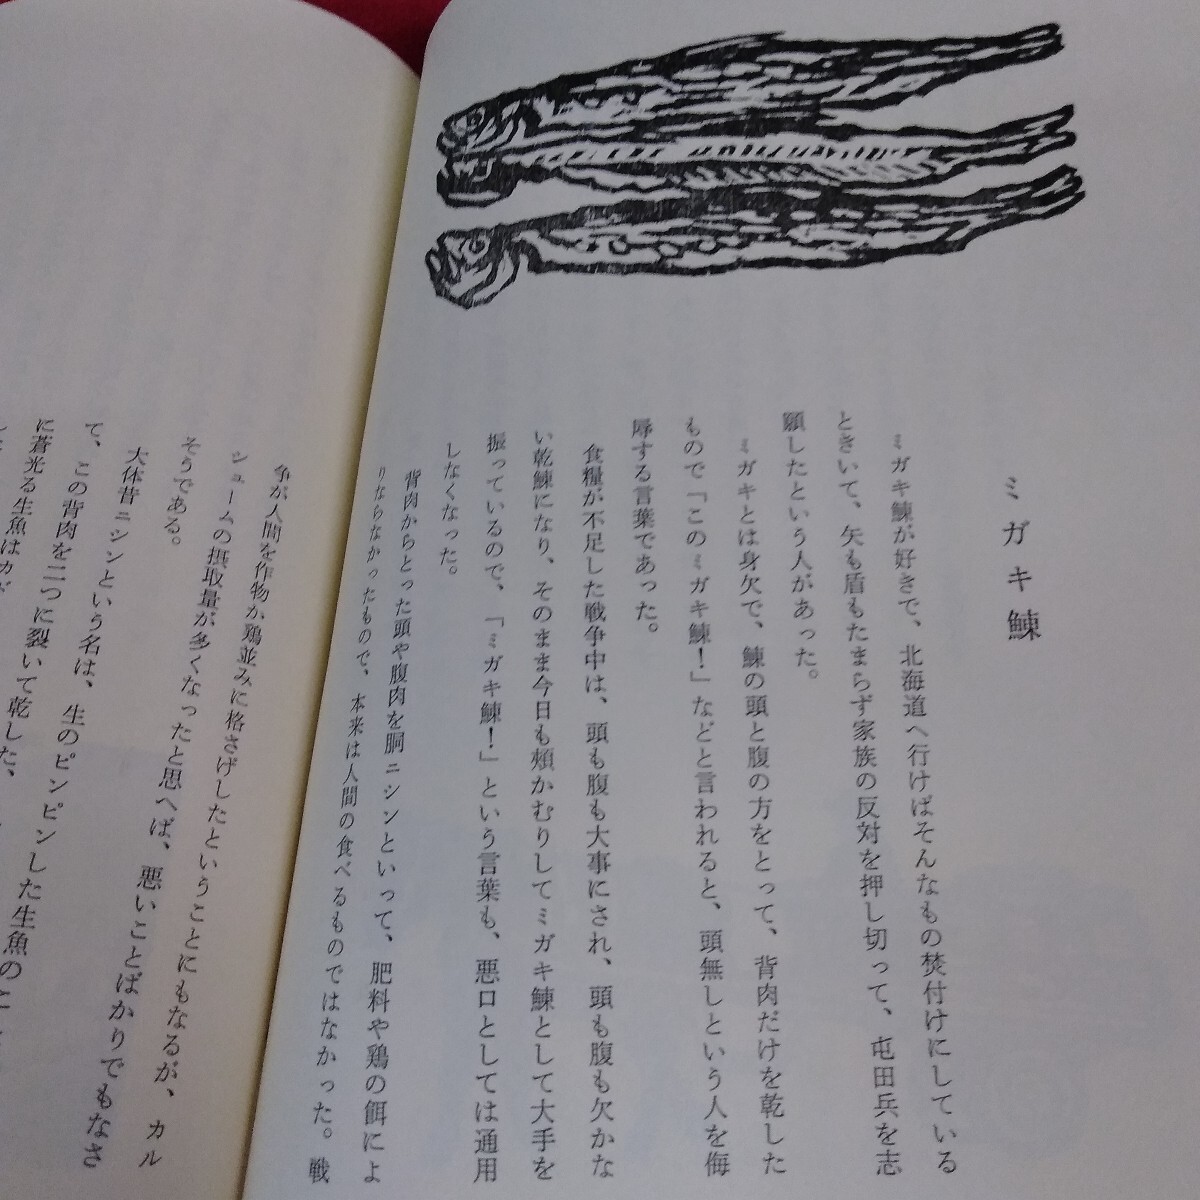 ミガキ鰊
ミガキ鰊が好きで、北海道へ行けばそんなもの焚付けにしている
ときいて、矢も盾もたまらず家族の反対を押し切って、屯田兵を志
願したという人があった。
ミガキとは身欠で、鰊の頭と腹の方をとって、背肉だけを乾した
もので「このミガキ鰊！」などと言われると、頭無しという人を侮
辱する言葉であった。
食糧が不足した戦争中は、頭も腹も大事にされ、頭も腹も欠かな
い乾鰊になり、そのまま今日も頰かむりしてミガキ鰊として大手を
振っているので、「ミガキ鰊！」という言葉も、悪口としては通用
しなくなった。
背肉からとった頭や腹肉を胴ニシンといって、肥料や鶏の餌によ
りならなかったもので、本来は人間の食べるものではなかった。戦
争が人間を作物か鶏並みに格さげしたということにもなるが、カル
シュームの摂取量が多くなったと思へば、悪いことばかりでもなさ
そうである。
大体昔ニシンという名は、生のピンピンした生魚のこ
て、この背肉を二つに裂いて乾した、
に蒼光る生魚はカド